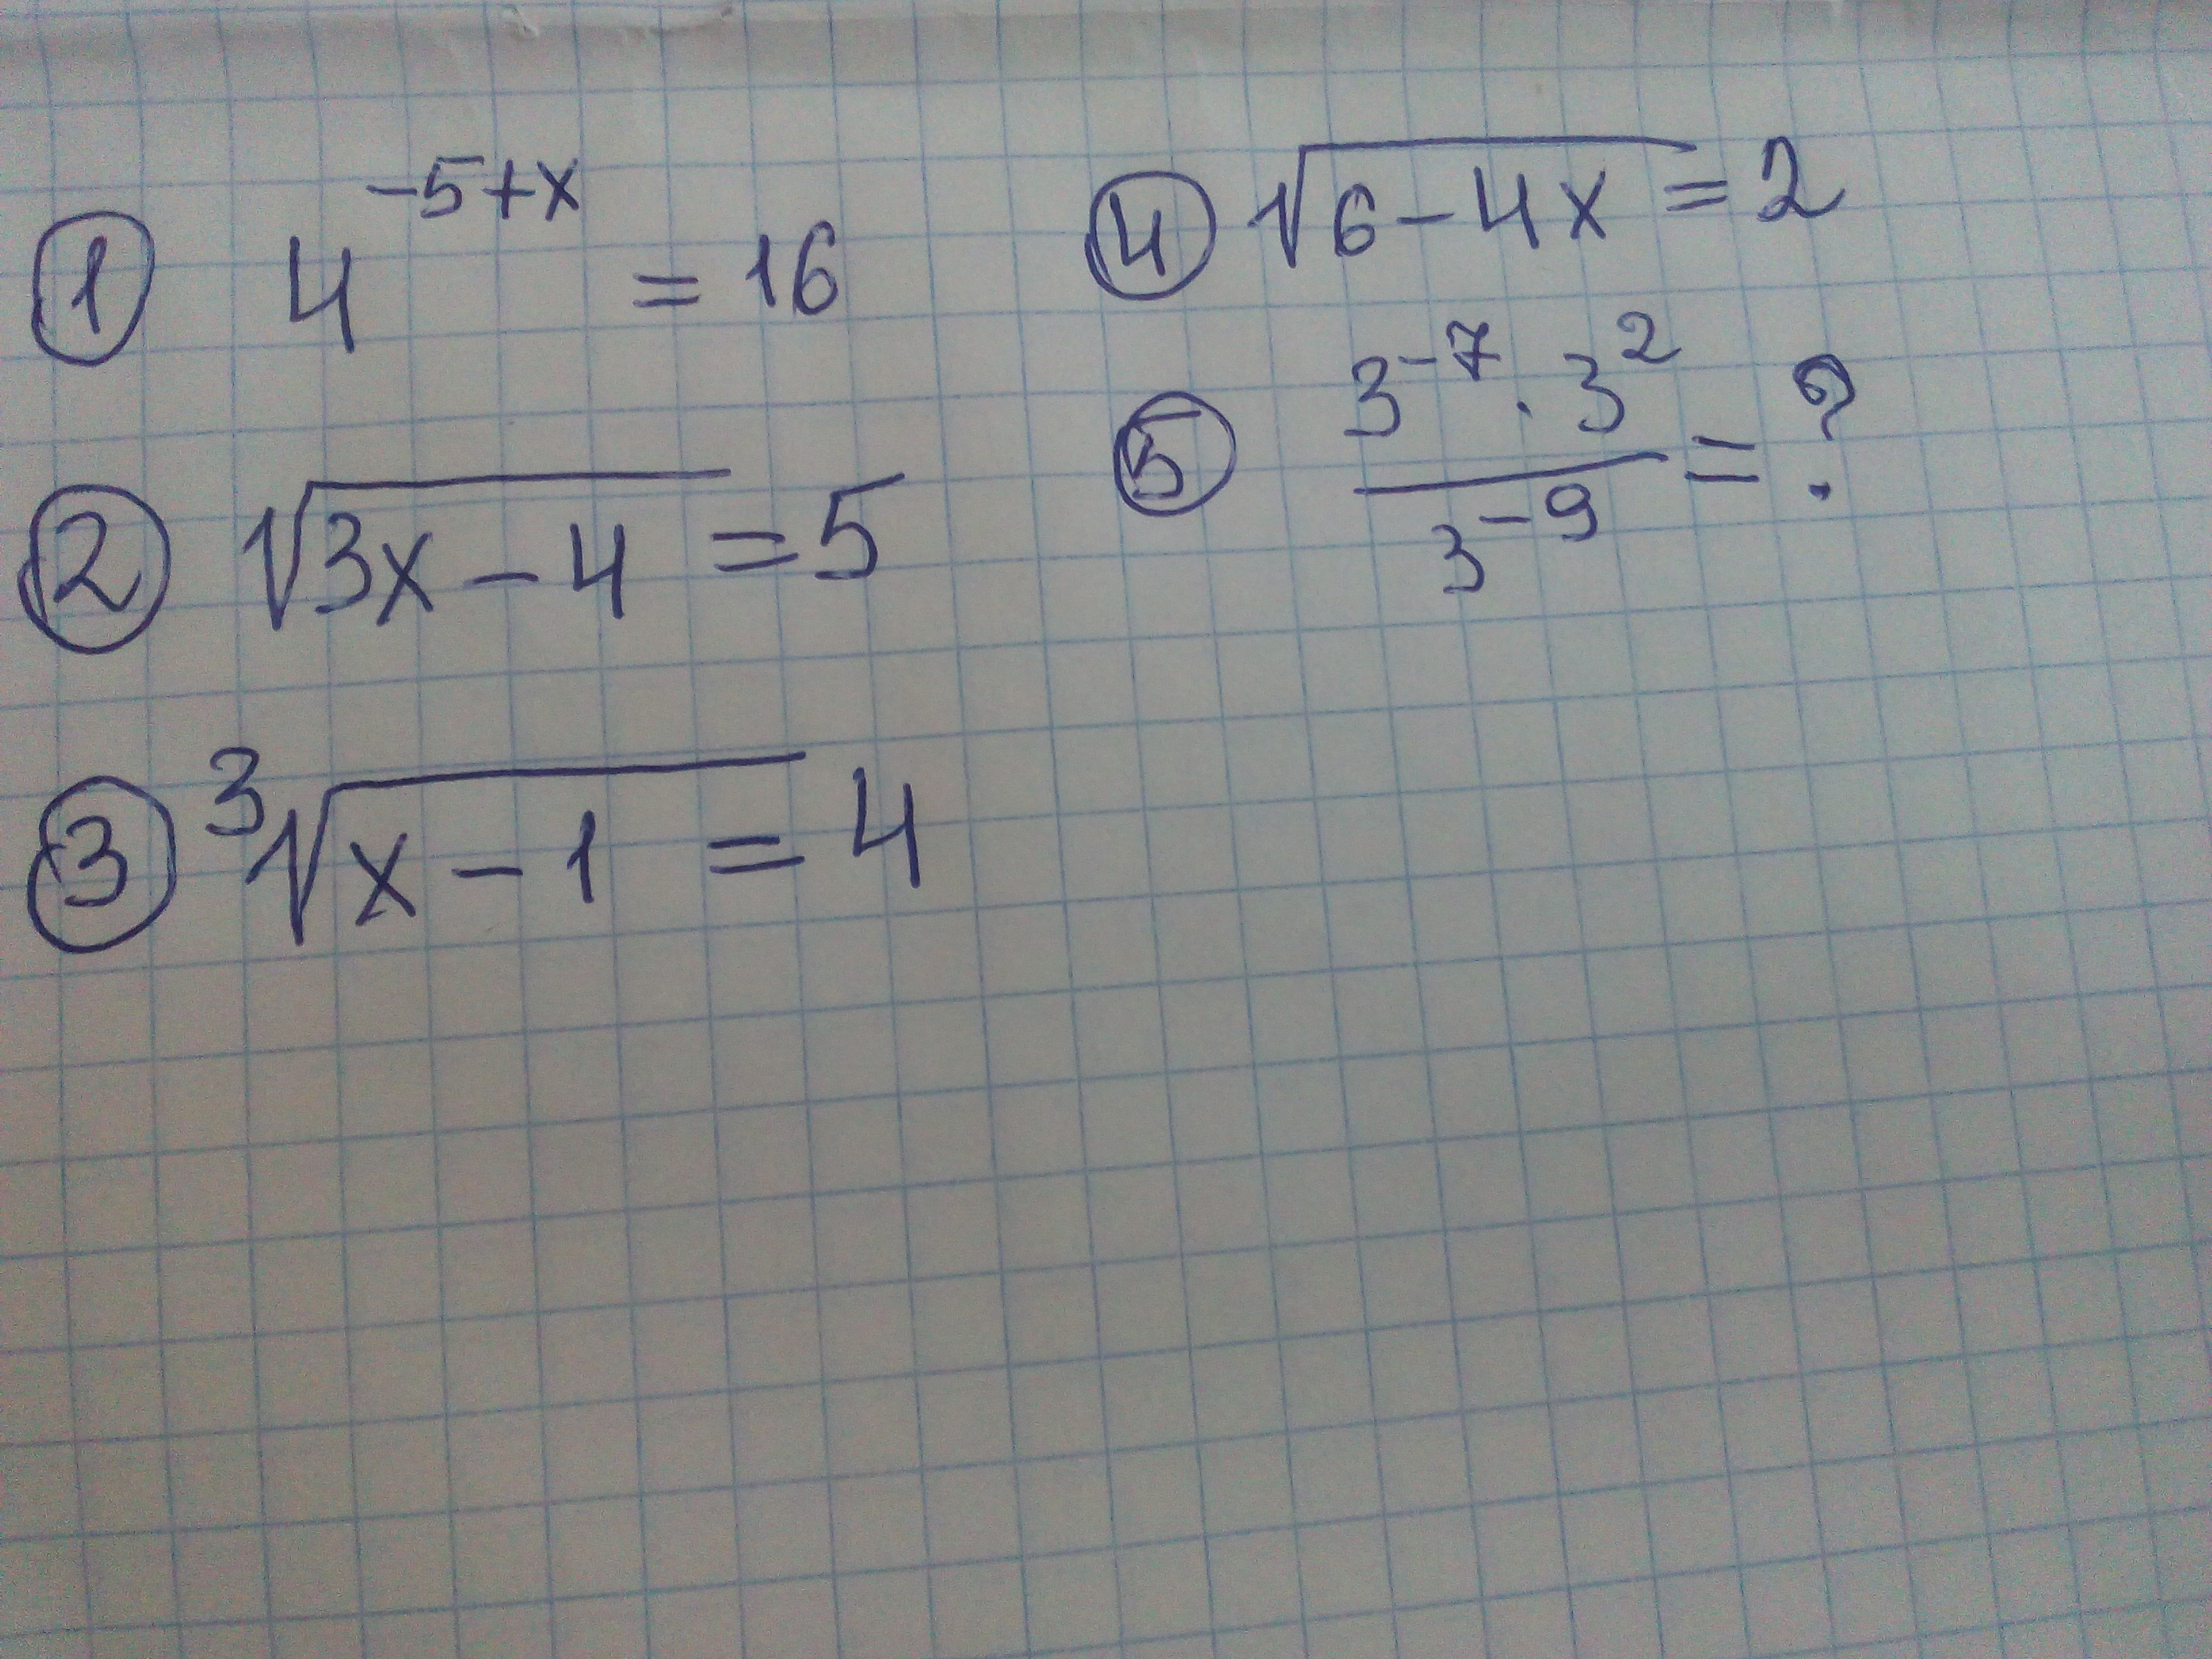 ① 4^(-5+x) = 16
② √(3x-4) = 5
③ ³√(x-1) = 4
④ √(6-4x) = 2
⑤ (3^(-7) · 3^2) / 3^(-9) = ?